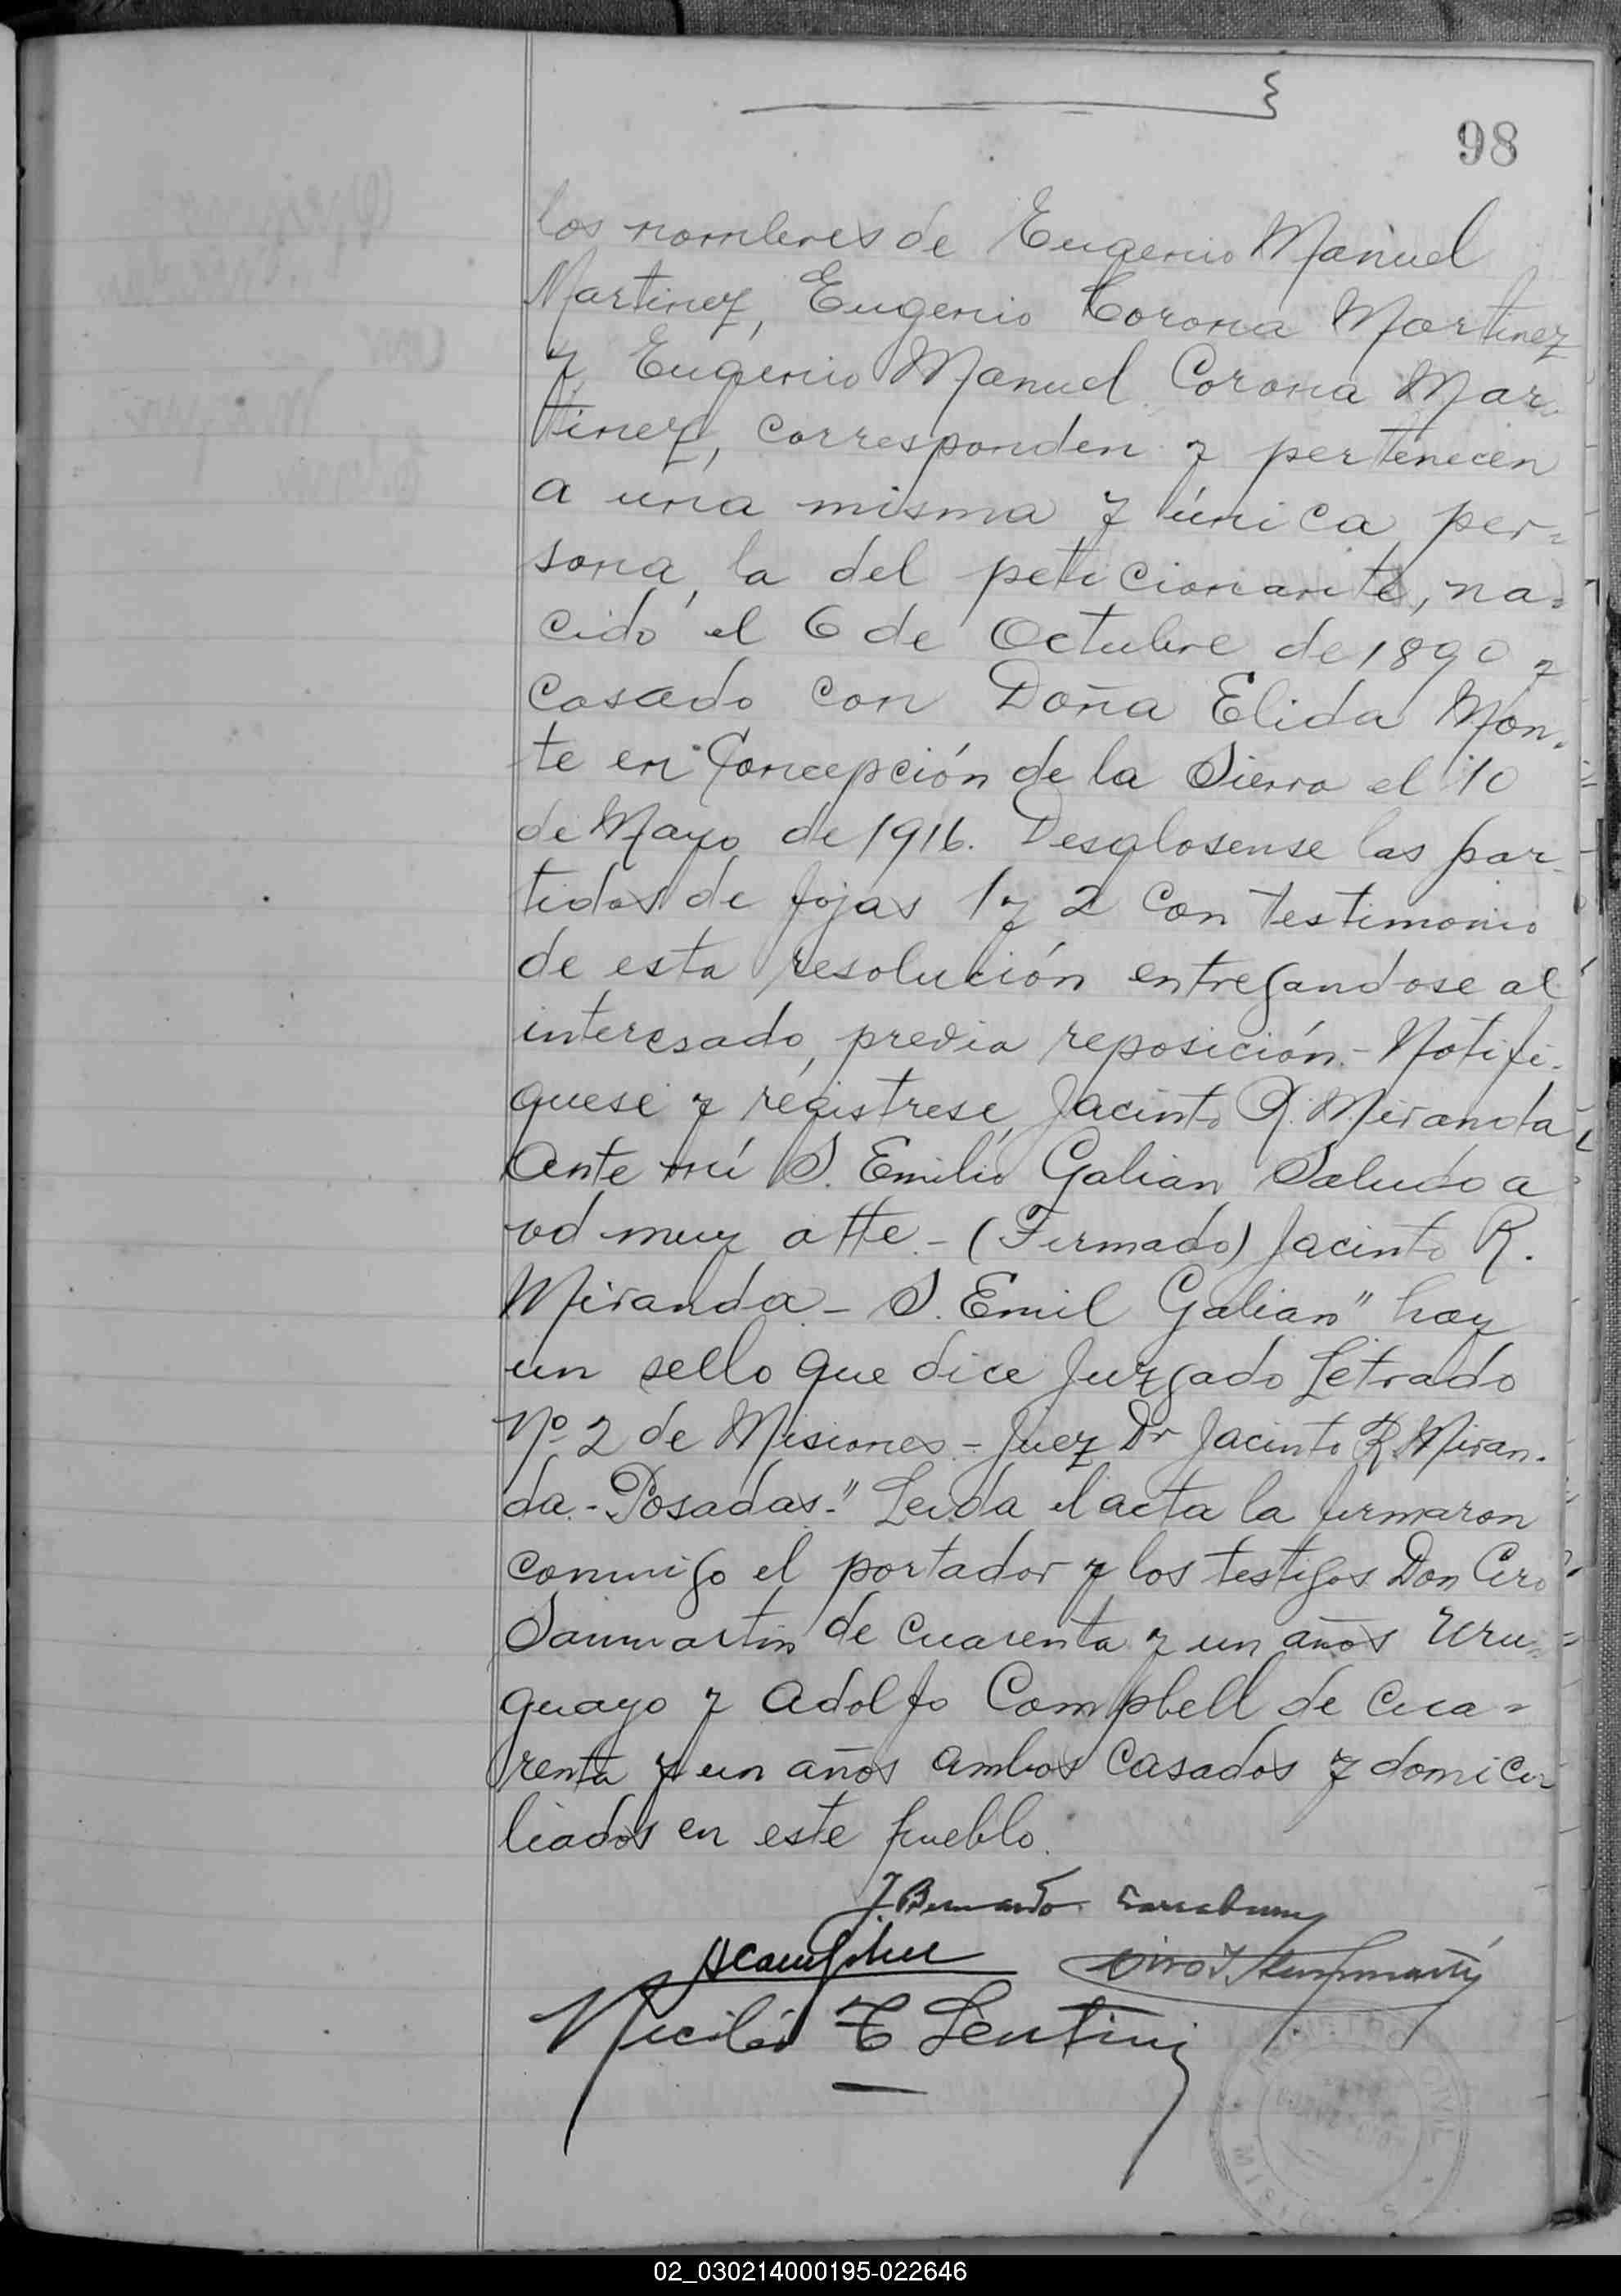 98
los nombres de Eugenio Manuel
Martinez, Eugenio Corona Martinez
y Eugenio Manuel Corona Mar-
tinez, corresponden y pertenecen
a una misma y única per=
sona, la del peticionante, na=
cido el 6 de Octubre de 1890 y
casado con Doña Elida Mon-
te en Concepción de la Sierra el 10
de Mayo de 1916. Desglosense las par-
tidas de fojas 1 y 2 con testimonio
de esta resolución entregandose al
interesado, previa reposición.- Notifi-
quese y régistrese, Jacinto R. Miranda
Ante mí S. Emilio Galian Saludo a
vd muy atte.- (Firmado) Jacinto R.
Miranda - S. Emil Galian" hay
un sello que dice Juzgado Letrado
Nº 2 de Misiones - Juez Dr Jacinto R. Miran-
da.- Posadas.-" Leida el acta la firmaron
conmigo el portador y los testigos Don Ciro
Sanmartin de cuarenta y un años Uru=
guayo y Adolfo Campbell de cua=
renta y un años ambos casados y domici-
liados en este pueblo.
J. Bernardo
ACampbell Ciro J. Sanmartin
Nicolás C Lentini
02_030214000195-022646